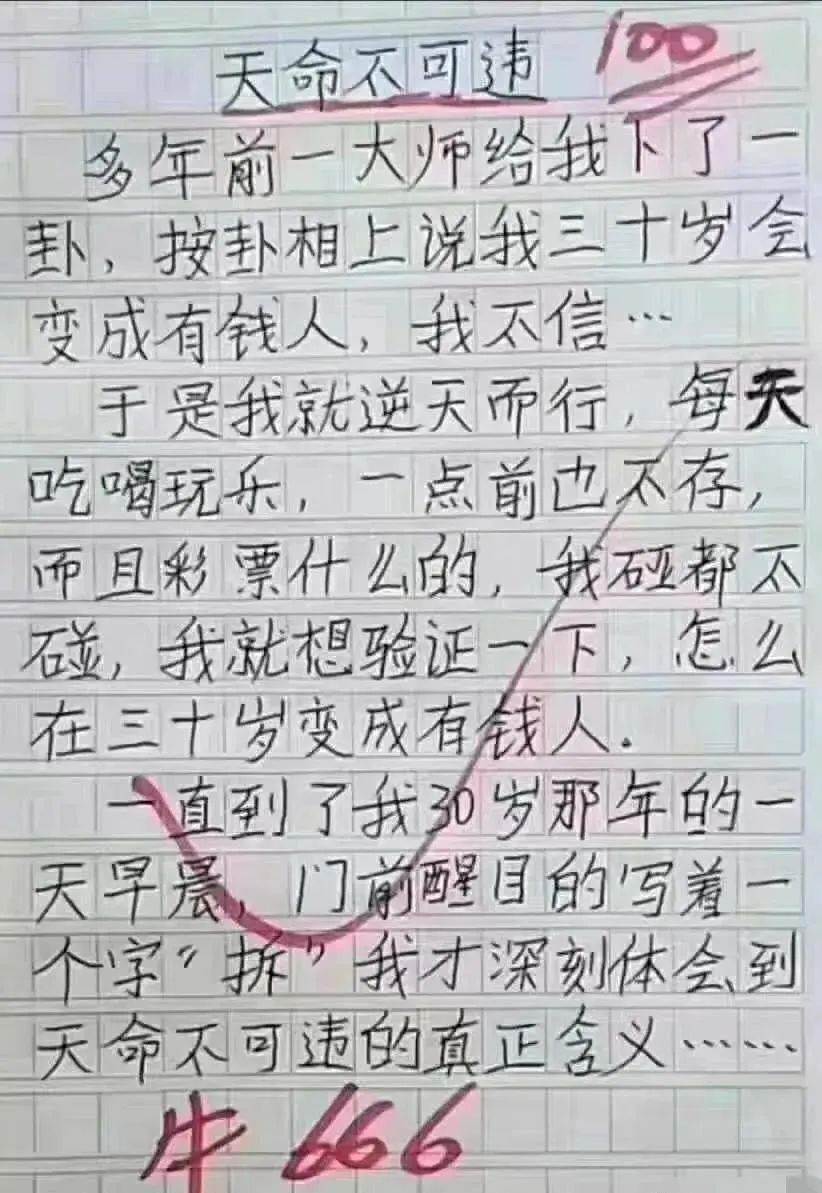 天命不可违 100
多年前一大师给我下了一
卦，按卦相上说我三十岁会
变成有钱人，我不信…
于是我就逆天而行，每天
吃喝玩乐，一点前也不存，
而且彩票什么的，我碰都不
碰，我就想验证一下，怎么
在三十岁变成有钱人.
一直到了我30岁那年的一
天早晨，门前醒目的写着一
个字“拆”我才深刻体会到
天命不可违的真正含义……
牛 666